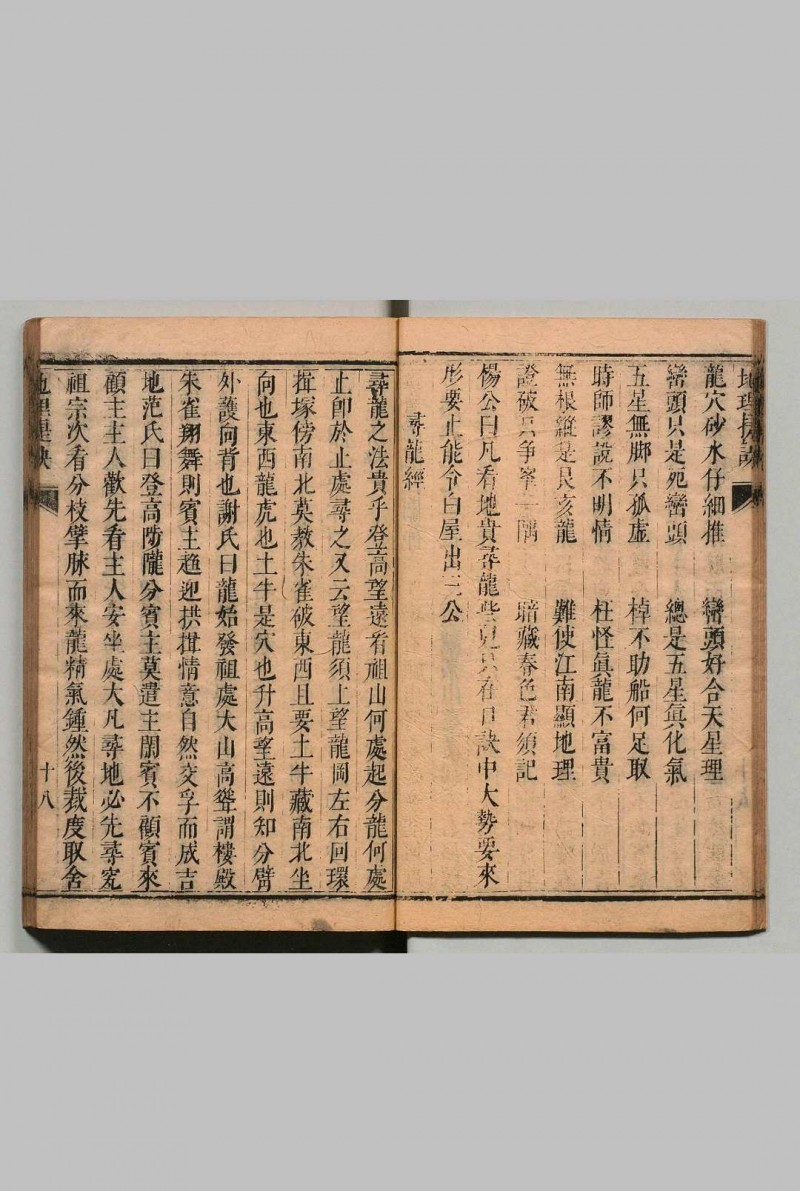 地理捷訣
龍穴砂水仔細推　巒頭好合天星理
巒頭只是死巒頭　總是五星眞化氣
五星無脚只孤虛　棹不助船何足取
時師謬說不明情　枉怪眞龍不富貴
無根縱是艮亥龍　難使江南顯地理
證破只爭寧一隅　暗藏春色君須記
楊公曰凡看地貴尋龍些見只在口訣中大勢要來
形要止能令白屋出三公
尋龍經
尋龍之法貴乎登高望遠看祖山何處起分龍何處
止卽於止處尋之又云望龍須上望龍岡左右回環
揖塚傍南北莫教朱雀破東西且要土牛藏南北坐
向也東西龍虎也土牛是穴也升高望遠則知分劈
外護向背也謝氏曰龍始發祖處大山高聳謂樓殿
朱雀翔舞則賓主趨迎拱揖情意自然交孚而成吉
地范氏曰登高陟隴分賓主莫遣主閑賓不顧賓來
顧主主人歡先看主人安坐處大凡尋地必先尋究
祖宗次看分枝擘脉而來龍精氣鍾然後裁度取舍
地理捷訣
十八